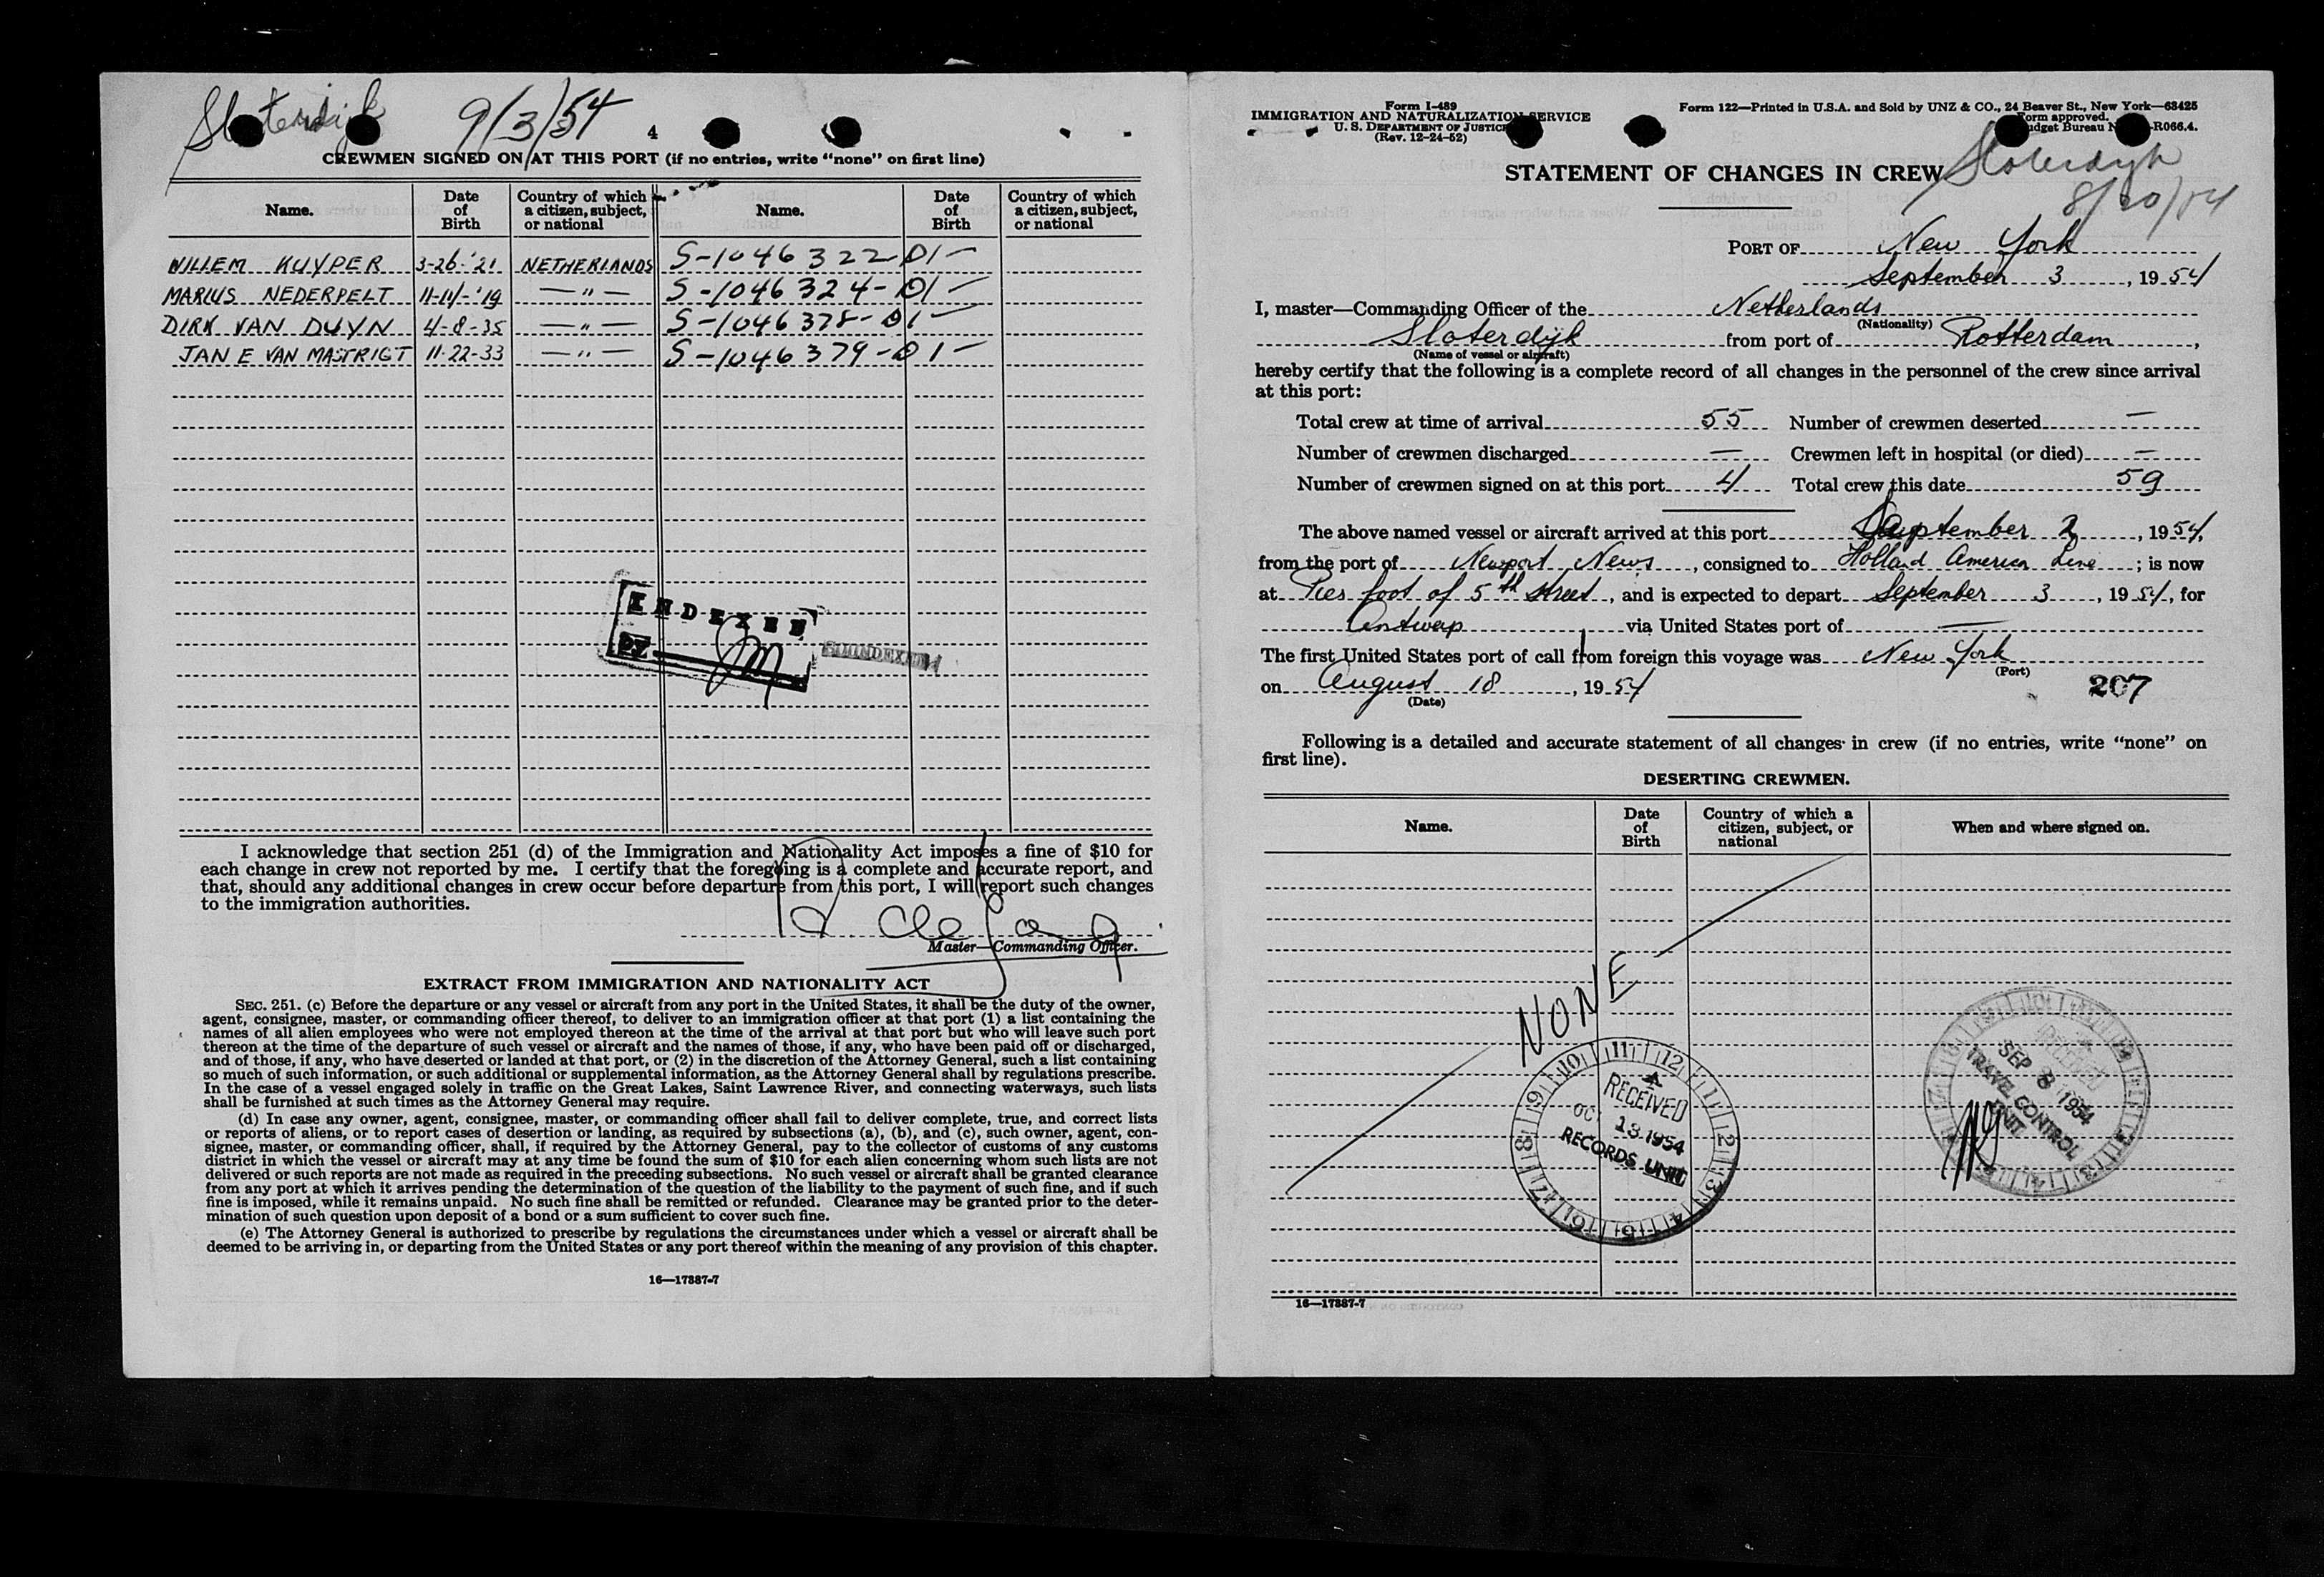 Sloterdijk 9/3/54
4
CREWMEN SIGNED ON AT THIS PORT (if no entries, write “none” on first line)
Name. Date of Birth Country of which a citizen, subject, or national Name. Date of Birth Country of which a citizen, subject, or national
WILLEM KUYPER 3-26-'21 NETHERLANDS S-1046322-01-
MARIUS NEDERPELT 11-11-'19 —"— S-1046324-01-
DIRK VAN DUYN 4-8-35 —"— S-1046378-01-
JAN E VAN MASTRIGT 11-22-33 —"— S-1046379-01-
INDEXED
SOUNDEXED
I acknowledge that section 251 (d) of the Immigration and Nationality Act imposes a fine of $10 for
each change in crew not reported by me. I certify that the foregoing is a complete and accurate report, and
that, should any additional changes in crew occur before departure from this port, I will report such changes
to the immigration authorities.
Master—Commanding Officer.
EXTRACT FROM IMMIGRATION AND NATIONALITY ACT
SEC. 251. (c) Before the departure or any vessel or aircraft from any port in the United States, it shall be the duty of the owner,
agent, consignee, master, or commanding officer thereof, to deliver to an immigration officer at that port (1) a list containing the
names of all alien employees who were not employed thereon at the time of the arrival at that port but who will leave such port
thereon at the time of the departure of such vessel or aircraft and the names of those, if any, who have been paid off or discharged,
and of those, if any, who have deserted or landed at that port, or (2) in the discretion of the Attorney General, such a list containing
so much of such information, or such additional or supplemental information, as the Attorney General shall by regulations prescribe.
In the case of a vessel engaged solely in traffic on the Great Lakes, Saint Lawrence River, and connecting waterways, such lists
shall be furnished at such times as the Attorney General may require.
(d) In case any owner, agent, consignee, master, or commanding officer shall fail to deliver complete, true, and correct lists
or reports of aliens, or to report cases of desertion or landing, as required by subsections (a), (b), and (c), such owner, agent, con-
signee, master, or commanding officer, shall, if required by the Attorney General, pay to the collector of customs of any customs
district in which the vessel or aircraft may at any time be found the sum of $10 for each alien concerning whom such lists are not
delivered or such reports are not made as required in the preceding subsections. No such vessel or aircraft shall be granted clearance
from any port at which it arrives pending the determination of the question of the liability to the payment of such fine, and if such
fine is imposed, while it remains unpaid. No such fine shall be remitted or refunded. Clearance may be granted prior to the deter-
mination of such question upon deposit of a bond or a sum sufficient to cover such fine.
(e) The Attorney General is authorized to prescribe by regulations the circumstances under which a vessel or aircraft shall be
deemed to be arriving in, or departing from the United States or any port thereof within the meaning of any provision of this chapter.
16—17887-7
Form I-489
IMMIGRATION AND NATURALIZATION SERVICE
U. S. DEPARTMENT OF JUSTICE
(Rev. 12-24-52)
Form 122—Printed in U.S.A. and Sold by UNZ & CO., 24 Beaver St., New York—68425
Form approved.
Budget Bureau -R066.4.
STATEMENT OF CHANGES IN CREW
Sloterdyk
PORT OF New York
September 3, 1954
I, master—Commanding Officer of the Netherlands
(Nationality)
Sloterdijk from port of Rotterdam,
(Name of vessel or aircraft)
hereby certify that the following is a complete record of all changes in the personnel of the crew since arrival
at this port:
Total crew at time of arrival 55 Number of crewmen deserted —
Number of crewmen discharged — Crewmen left in hospital (or died) —
Number of crewmen signed on at this port 4 Total crew this date 59
The above named vessel or aircraft arrived at this port September 2, 1954,
from the port of Newport News, consigned to Holland America Line; is now
at Pier foot of 5th Street, and is expected to depart September 3, 1954, for
Antwerp via United States port of —
The first United States port of call from foreign this voyage was New York
(Port)
on August 18, 1954
(Date)
207
Following is a detailed and accurate statement of all changes in crew (if no entries, write “none” on
first line).
DESERTING CREWMEN.
Name. Date of Birth Country of which a citizen, subject, or national When and where signed on.
NONE
RECEIVED
OCT 13 1954
RECORDS UNIT
RECEIVED
SEP 8 1954
TRAVEL CONTROL
UNIT
16—17887-7